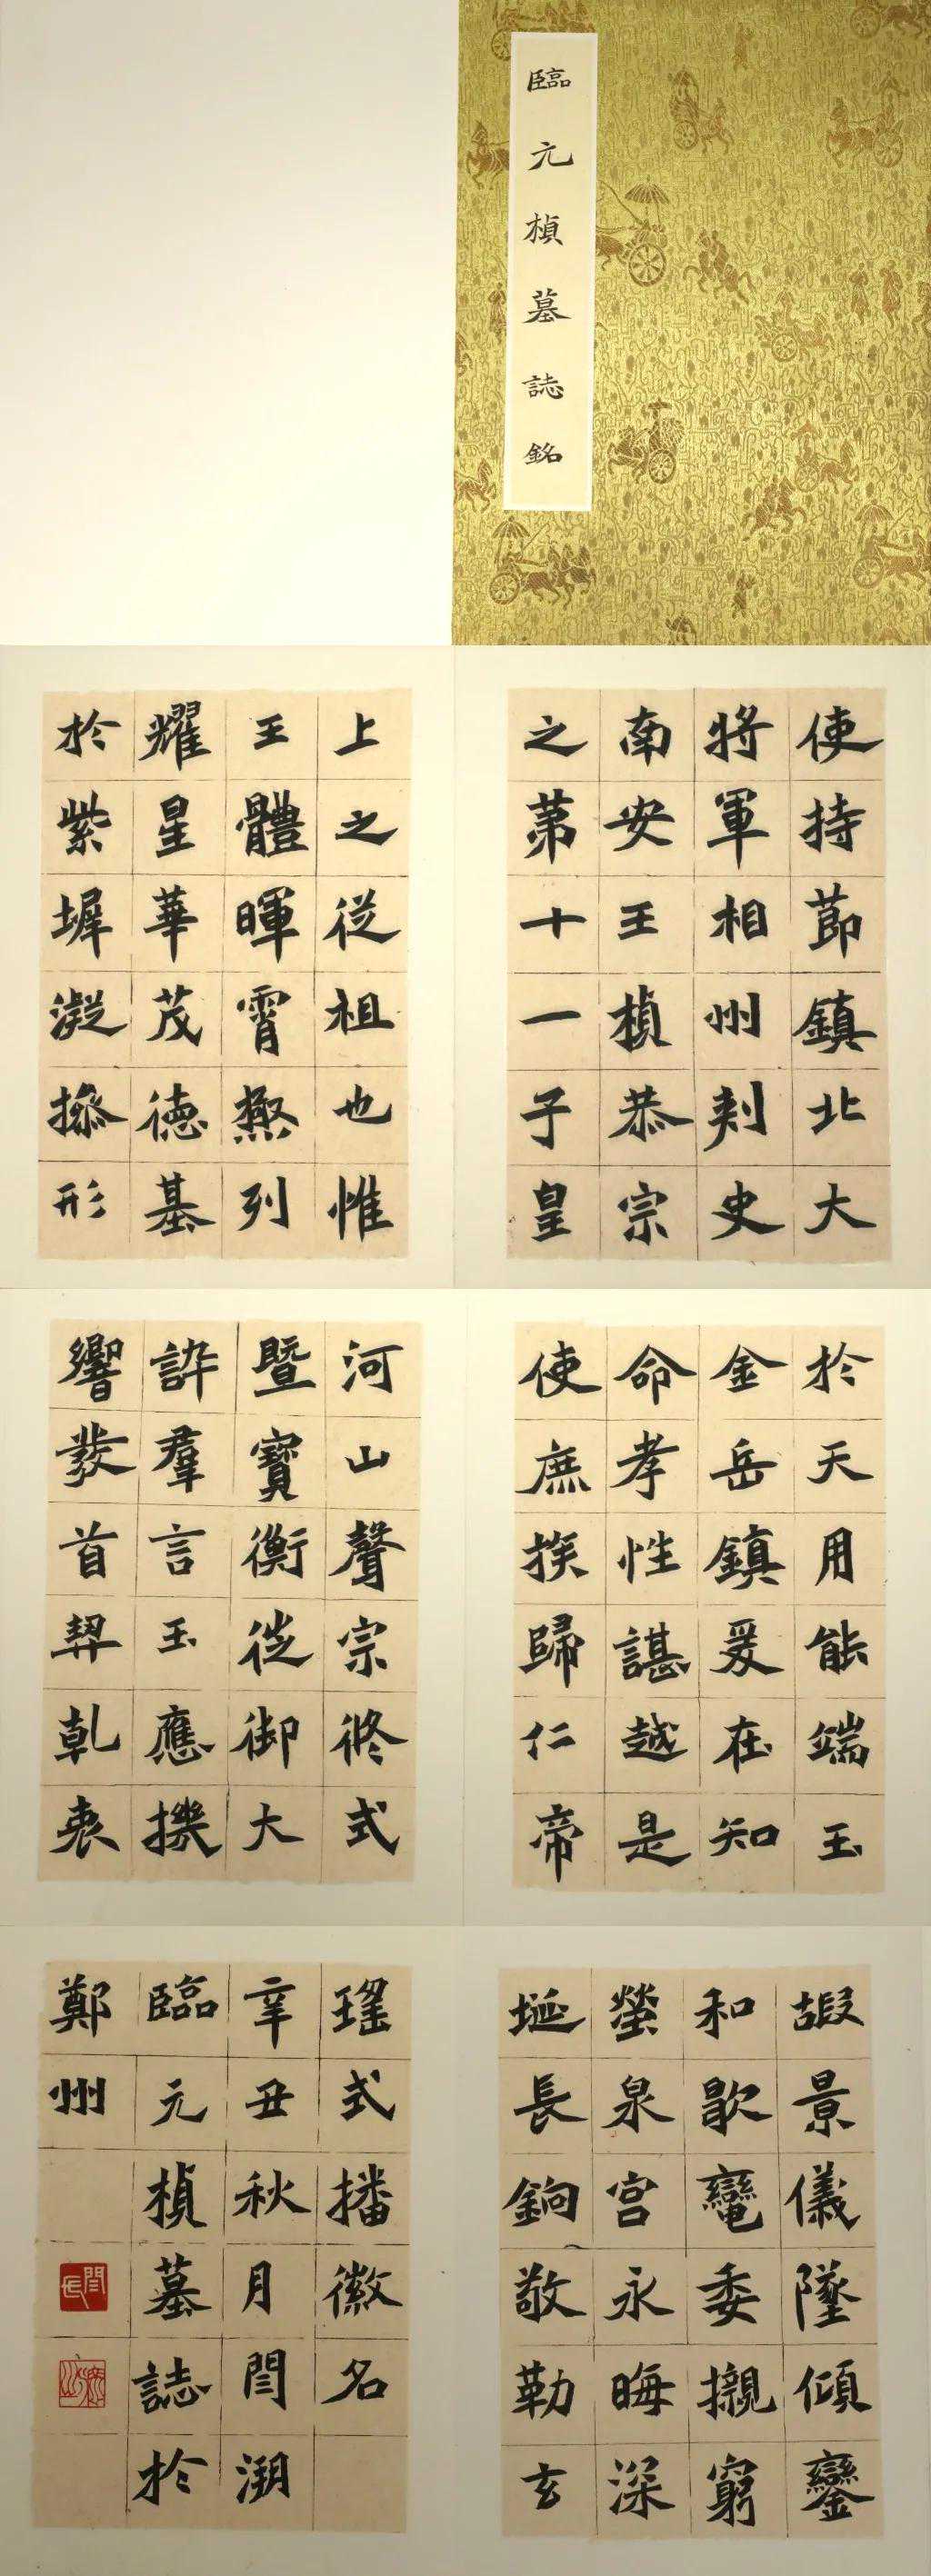 臨元楨墓誌銘
使持節鎮北大
將軍相州刺史
南安王楨恭宗
之第十一子皇
上之從祖也惟
王體暉霄極列
耀星華茂德基
於紫墀凝操形
於天用能端玉
金岳鎮爰在知
命孝性諶越是
使庶族歸仁帝
河山聲宗終式
暨寶衡徙御大
訊羣言王應機
響發首契乾衷
嘏景儀墜傾鑾
和歇轡委櫬窮
塋泉宮永晦深
埏長鐍敬勒玄
瑤式播徽名
辛丑秋月閆溯
臨元楨墓誌於
鄭州